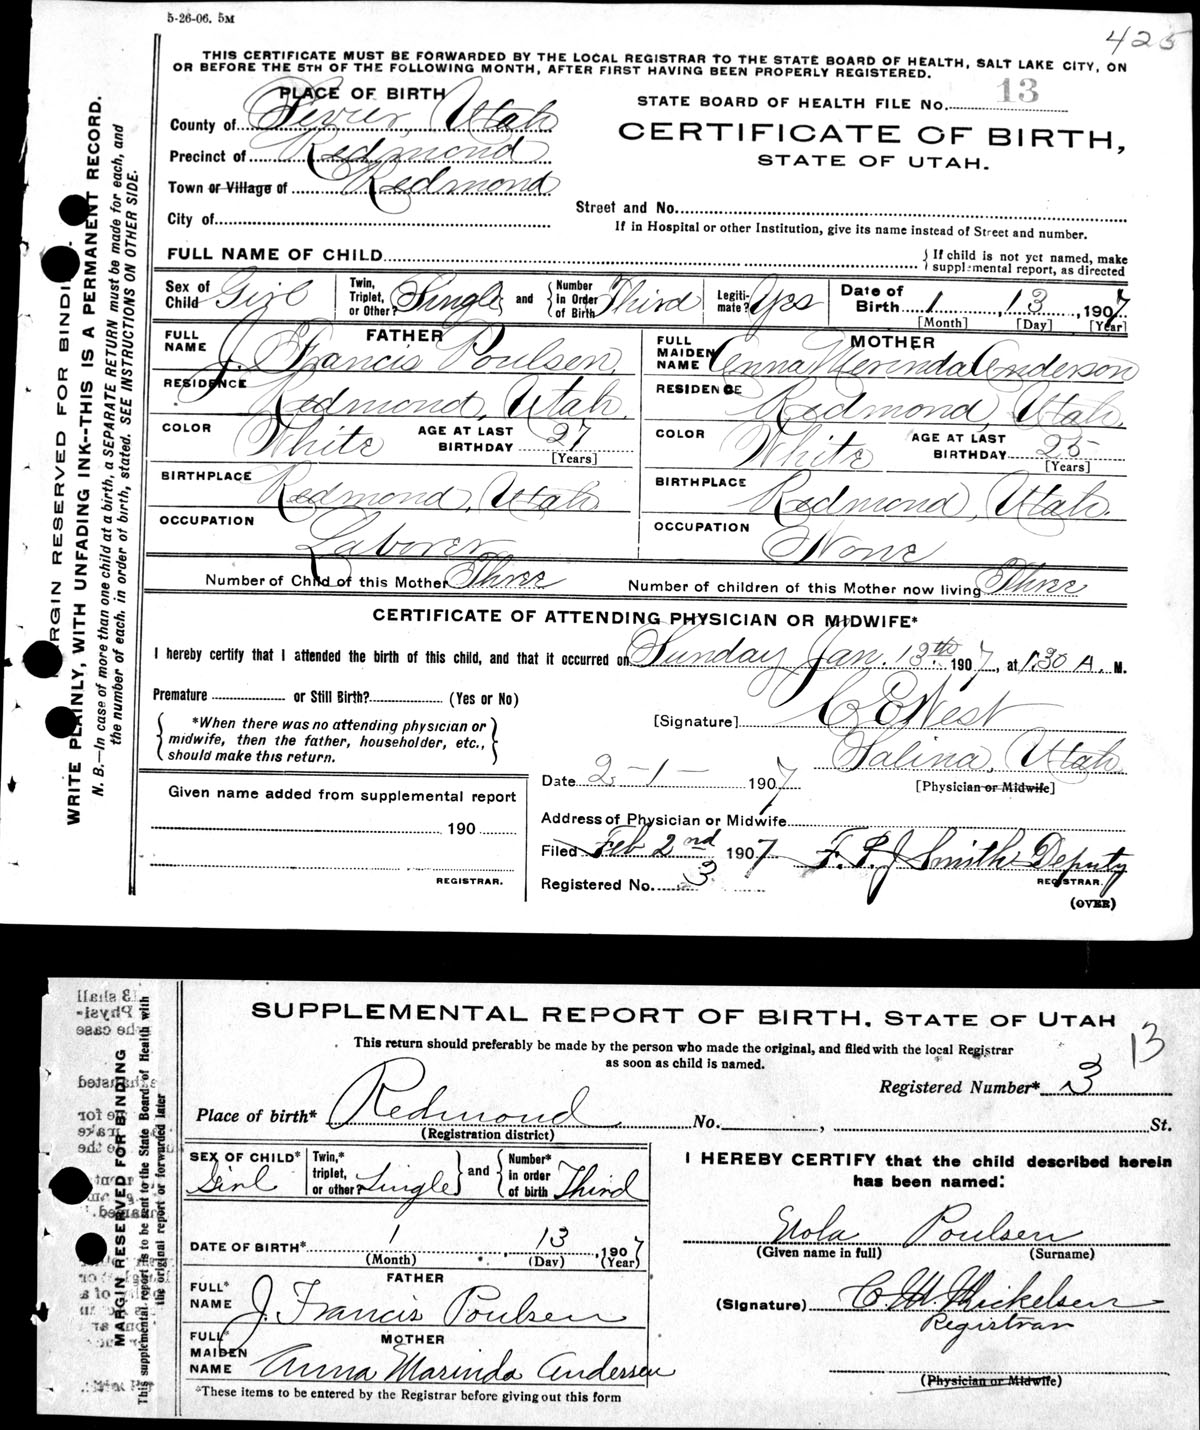 5-26-06. 5M
425
THIS CERTIFICATE MUST BE FORWARDED BY THE LOCAL REGISTRAR TO THE STATE BOARD OF HEALTH, SALT LAKE CITY, ON
OR BEFORE THE 5TH OF THE FOLLOWING MONTH, AFTER FIRST HAVING BEEN PROPERLY REGISTERED.
PLACE OF BIRTH
STATE BOARD OF HEALTH FILE No. 13
County of Sevier, Utah
CERTIFICATE OF BIRTH,
STATE OF UTAH.
Precinct of Redmond
Town or Village of Redmond
Street and No.
City of
If in Hospital or other Institution, give its name instead of Street and number.
FULL NAME OF CHILD
{If child is not yet named, make
supplemental report, as directed
Sex of Child Girl
Twin, Triplet, or Other? Single and {Number in Order of Birth Third
Legitimate? Yes
Date of Birth 1, 13, 1907
[Month] [Day] [Year]
FATHER
FULL NAME J. Francis Poulsen,
RESIDENCE Redmond, Utah.
COLOR White AGE AT LAST BIRTHDAY 27
[Years]
BIRTHPLACE Redmond, Utah
OCCUPATION Laborer
MOTHER
FULL MAIDEN NAME Anna Merinda Anderson
RESIDENCE Redmond, Utah
COLOR White AGE AT LAST BIRTHDAY 25
[Years]
BIRTHPLACE Redmond, Utah.
OCCUPATION None
Number of Child of this Mother Three Number of children of this Mother now living Three
CERTIFICATE OF ATTENDING PHYSICIAN OR MIDWIFE*
I hereby certify that I attended the birth of this child, and that it occurred on Sunday Jan. 13th 1907, at 1:30 A. M.
Premature or Still Birth? (Yes or No)
*When there was no attending physician or
midwife, then the father, householder, etc.,
should make this return.
[Signature] C E West
Salina, Utah
[Physician or Midwife]
Date 2-1- 1907
Given name added from supplemental report
190
REGISTRAR.
Address of Physician or Midwife
Filed Feb 2nd 1907 F. P. J Smith Deputy
REGISTRAR.
Registered No. 3
(OVER)
MARGIN RESERVED FOR BINDING.
WRITE PLAINLY, WITH UNFADING INK--THIS IS A PERMANENT RECORD.
N. B.—In case of more than one child at a birth, a SEPARATE RETURN must be made for each, and
the number of each, in order of birth, stated. SEE INSTRUCTIONS ON OTHER SIDE.
SUPPLEMENTAL REPORT OF BIRTH, STATE OF UTAH
13
This return should preferably be made by the person who made the original, and filed with the local Registrar
as soon as child is named.
Registered Number* 3
Place of birth* Redmond No. , St.
(Registration district)
SEX OF CHILD* Girl
Twin,* triplet, or other? Single} and {Number* in order of birth Third
DATE OF BIRTH* 1, 13, 1907
(Month) (Day) (Year)
FATHER
FULL* NAME J. Francis Poulsen
MOTHER
FULL* MAIDEN NAME Anna Marinda Andersen
*These items to be entered by the Registrar before giving out this form
I HEREBY CERTIFY that the child described herein
has been named:
Poulsen
(Given name in full) (Surname)
(Signature) C. M. Mickelsen
Registrar
(Physician or Midwife)
MARGIN RESERVED FOR BINDING
This supplemental report is to be sent to the State Board of Health with
the original report or forwarded later